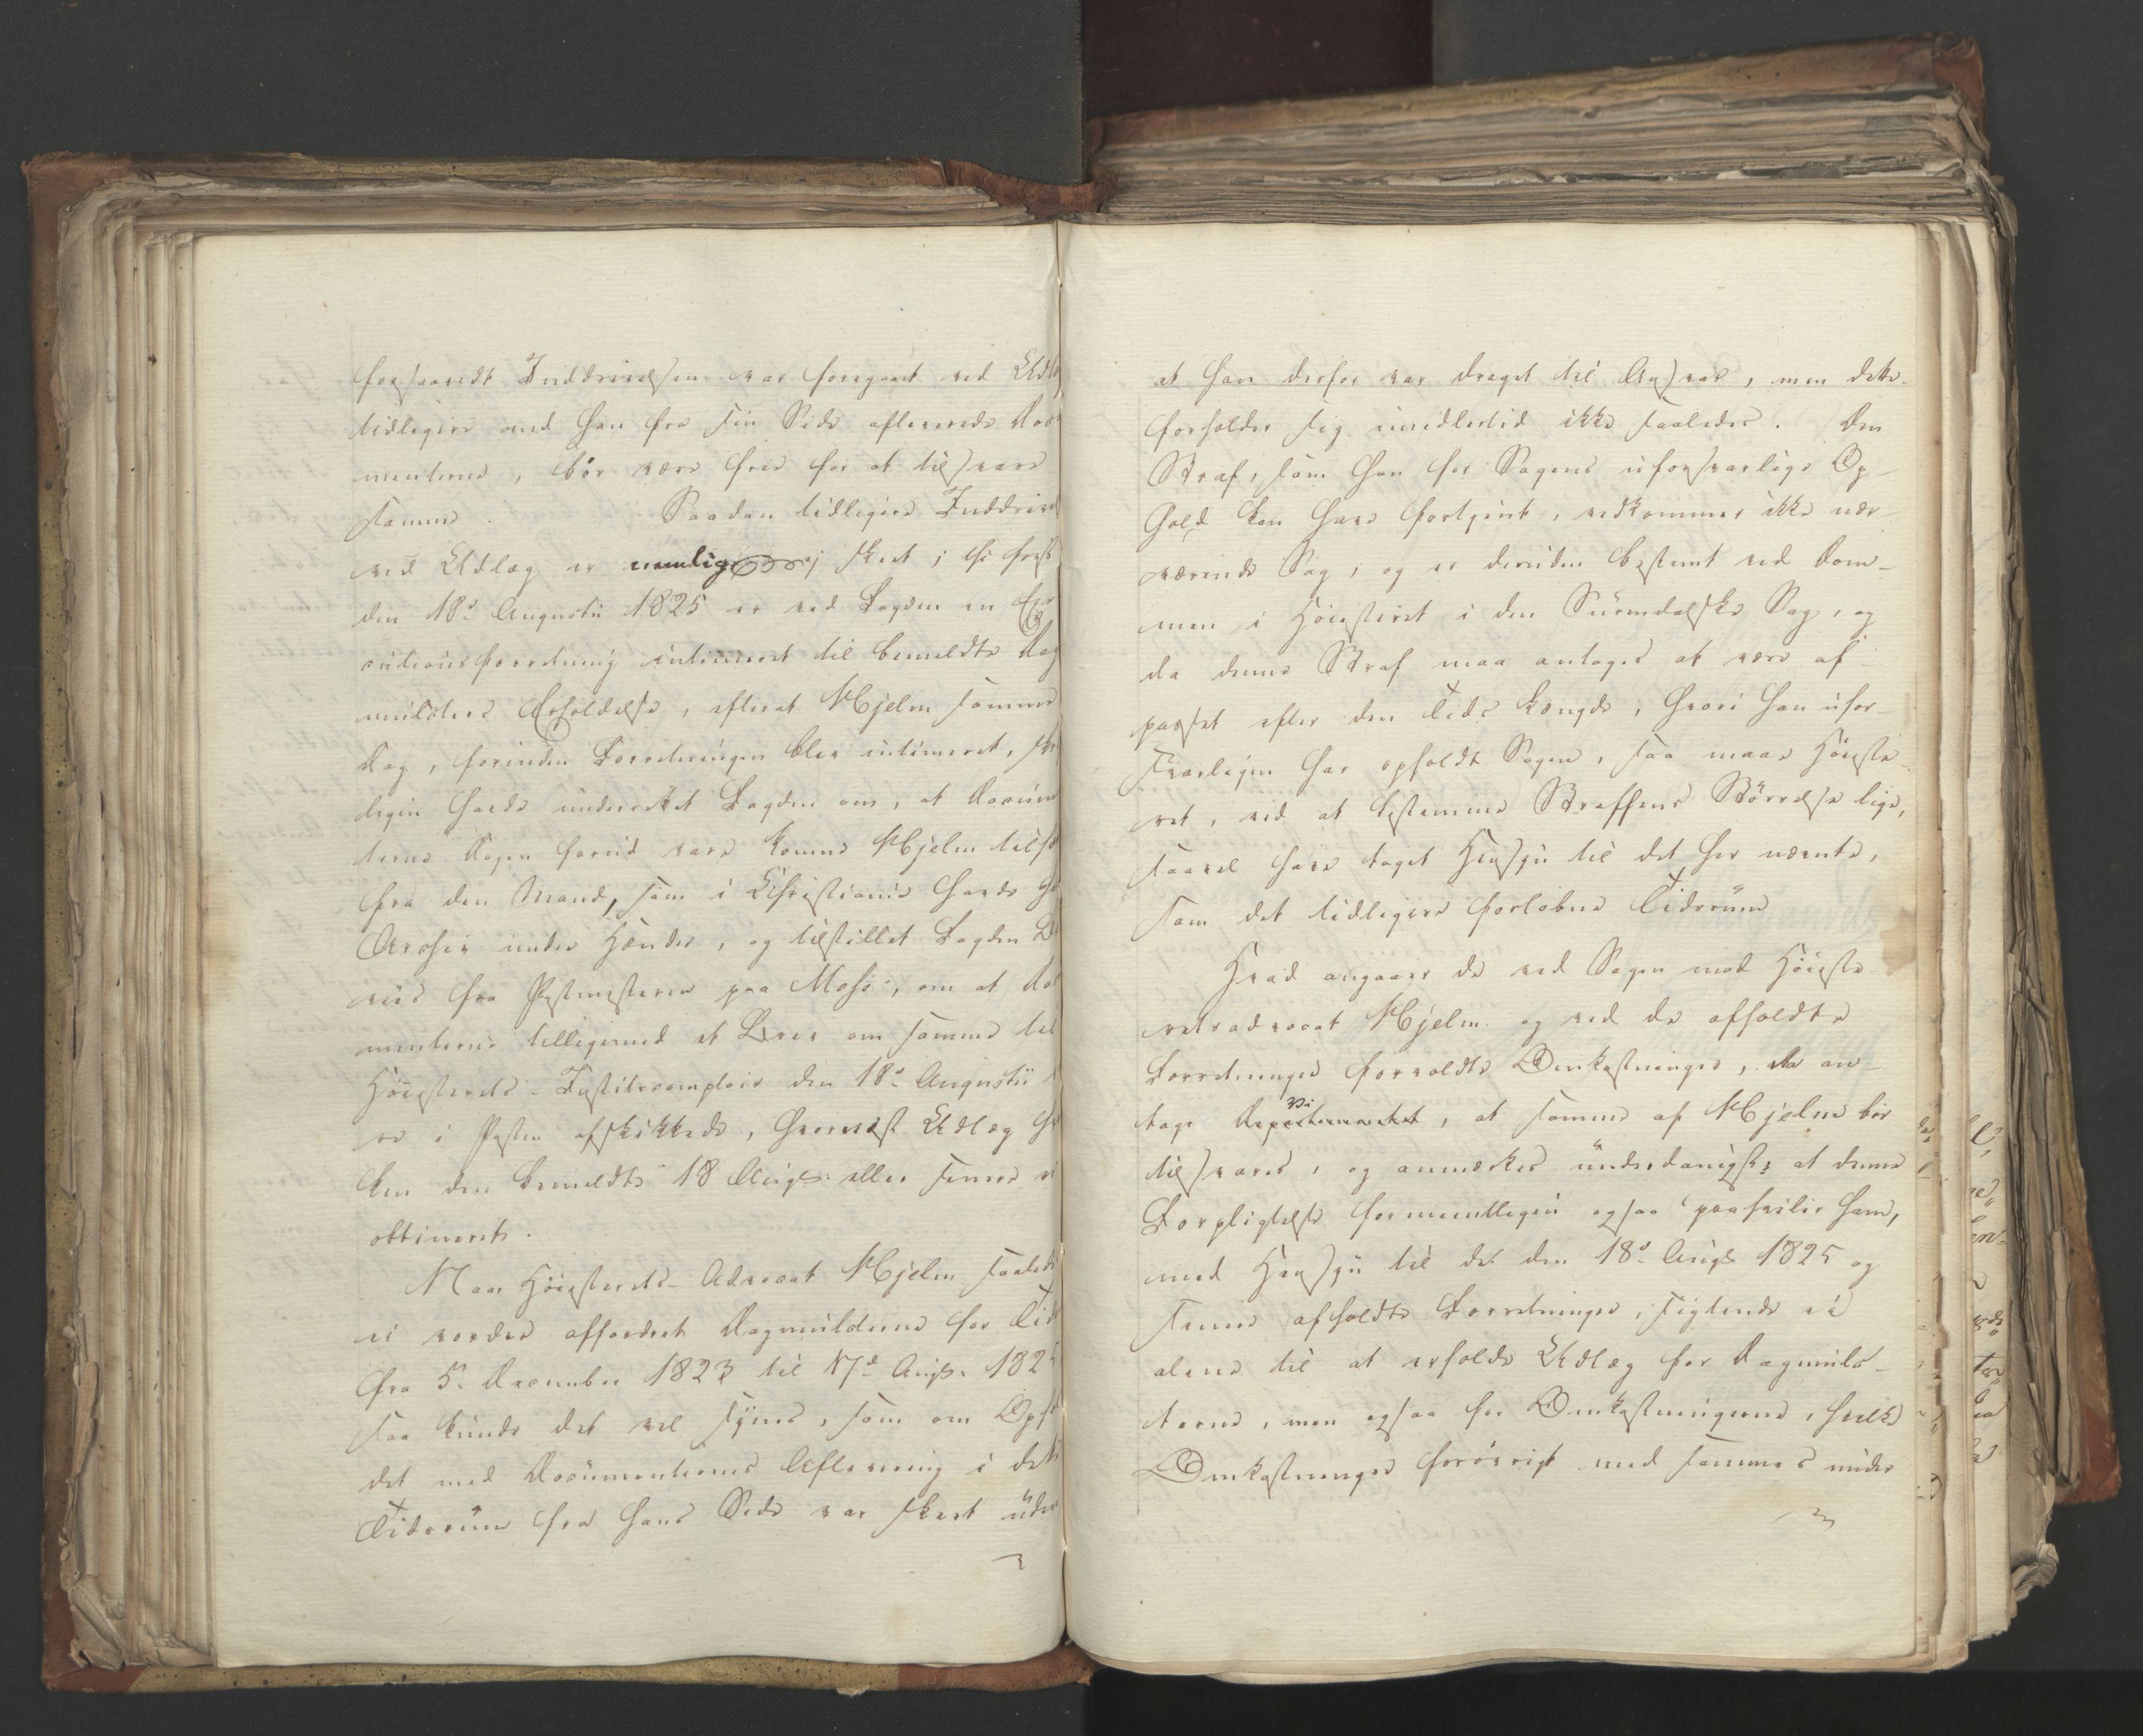 forsaavidt Inddrivelsen var foregaaet ved Udlæ
tidligere end han fra sin Side afleverede Docu
menterne, bør være frie for at tilsvare
samme. Saadan tidligere Inddrivel
ved Udlæg er nemlig ei skeet; thi først
den 18de Augustii 1825 er ved Fogden en Exe
cutionsforretning intimeret til bemeldte Dag
mulcters Erholdelse, efterat Hjelm samme
Dag, forinden Forretningen blev intimeret,
havde underrettet Fogden om, at Docum
terne Dagen forud vare komne Hjelm tilhæ
fra den Mand, som i Christiania havde
under Hænder, og tilstillet Fogden B
viis fra Postmesteren paa Moss, om at Do
menterne tilligemed et Brev om samme til
Høiesterets-Justitscomptoir den 18de Augustii
re i Posten afskikkede, hvornæst Udlæg h
ken den bemeldte 18 Augt: eller senere ei
obtineret.
Maa Høiesterets-Advocat Hjelm saalede
ei vorde affordret Dagmulcterne for Tid
fra 5te December 1823 til 17de Augt: 182
saa kunde det vel synes, som om Opho
det med Documenternes Aflevering i dett
Tidsrum fra hans Side var skeet uden
at han derfor var draget til Ansvar, men dette
forholder sig imidlertid ikke saaledes. Den
Straf, som han for Sagens uforsvarlige Op-
hold kan have fortjent, vedkommer ikke nær-
værende Sag, og er desuden bestemt ved Dom-
men i Høiesteret i den Surendalske Sag, og
da denne Straf maa antages at være af-
passet efter den Tids Længde, hvori han ufor-
svarligen har opholdt Sagen, saa maae Høieste-
ret, ved at bestemme Straffens Størrelse lige,
saavel have taget Hensyn til det her nævnte,
som det tidligere forløbne Tidsrum
Hvad angaaer de ved Sagen mod Høieste-
retsadvocat Hjelm og ved de afholdte
Forretninger forvoldte Omkostninger, da an-
tage vi Departementet, at samme af Hjelm bør
tilsvares, og anmærkes underdanigst; at denne
Forpligtelse formeentligen ogsaa paahviler ham,
med Hensyn til det den 18de Augt 1825 og
senere afholdte Forretninger, sigtende ei
alene til at erholde Udlæg for Dagmulc-
terne, men ogsaa for Omkostningerne, hvilke
Omkostninger forøvrigt med sammes under